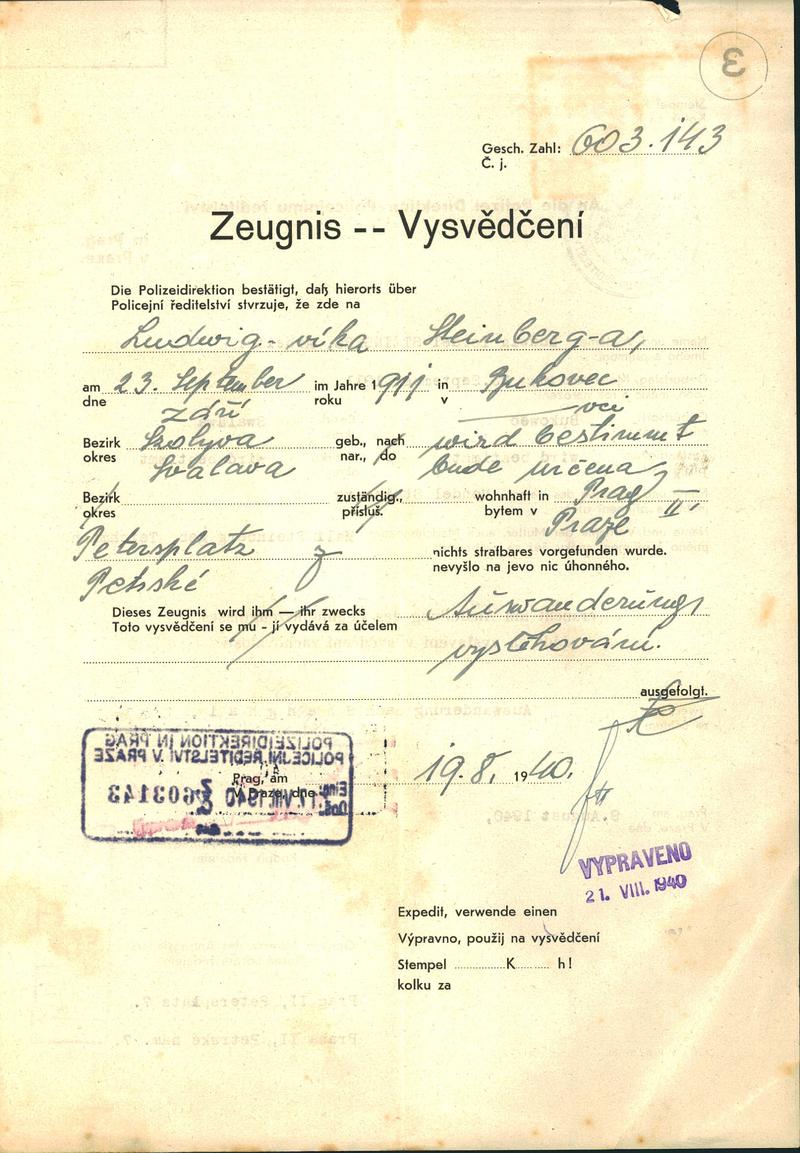 3
Gesch. Zahl: 603.143
Č. j.
Zeugnis -- Vysvědčení
Die Polizeidirektion bestätigt, daß hierorts über
Policejní ředitelství stvrzuje, že zde na
Ludwig-víka Steinberg-a,
am 23. September im Jahre 1911 in Bukovec
dne září roku v vci
Bezirk Szolyva geb., nach wird bestimmt
okres Svalava nar., do bude určena
Bezirk zuständig., wohnhaft in Prag II,
okres přísluš. bytem v Praze
Petersplatz 7 nichts strafbares vorgefunden wurde.
Petrské nevyšlo na jevo nic úhonného.
Dieses Zeugnis wird ihm — ihr zwecks Auswanderung
Toto vysvědčení se mu - jí vydává za účelem vystěhování.
ausgefolgt.
POLIZEIDIREKTION IN PRAG
POLICEJNÍ ŘEDITELSTVÍ V PRAZE
Prag, am 19.8. 1940.
V Praze, dne
Eing.
Došlo 17.VIII.1940 603143
VYPRAVENO
21. VIII. 1940
Expedit, verwende einen
Výpravno, použij na vysvědčení
Stempel K h!
kolku za
Prag II, Petersplatz 7.
Praha II, Petrské nám. 7.